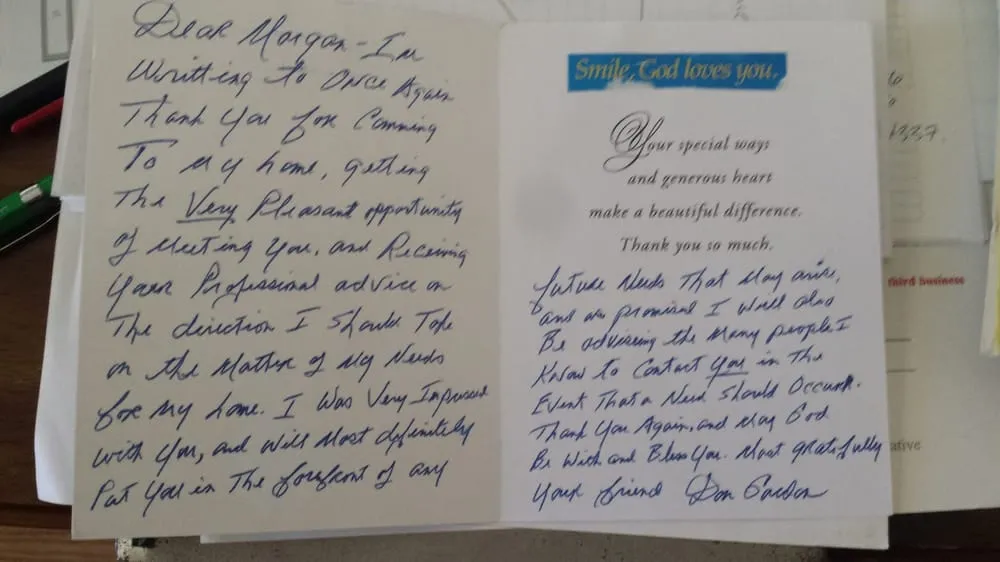 Dear Morgan - I'm
Writting to Once Again
Thank You for Comming
To my home, getting
The Very Pleasant opportunity
of Meeting You, and Receiving
Your Professional advice on
The direction I Should Take
on the Matter of My Needs
for My home. I Was Very Impressed
with You, and Will Most definitely
Put You in The forefront of any
Smile, God loves you.
Your special ways
and generous heart
make a beautiful difference.
Thank you so much.
future Needs That May arise,
and as promised I Will also
Be advising the Many people I
Know to Contact You in The
Event That a Need Should Occur.
Thank You Again, and May God
Be With and Bless You. Most gratifully
Your friend Don
third business